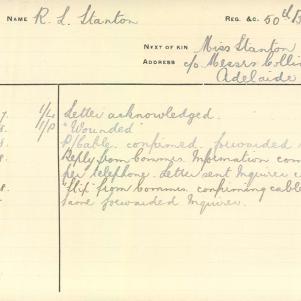 NAME R. L. Stanton REG. &C. 50th B
NEXT OF KIN Miss Stanton
ADDRESS c/o Messrs Collin
Adelaide
7. 1/L Letter acknowledged.
8. 1/P "Wounded"
8. P/Cable confirmed, forwarded
8. Reply from Commrs. Information con
per telephone. Letter sent Inquirer c
8. "Flix" from Commrs. confirming cable
Same forwarded Inquirer.